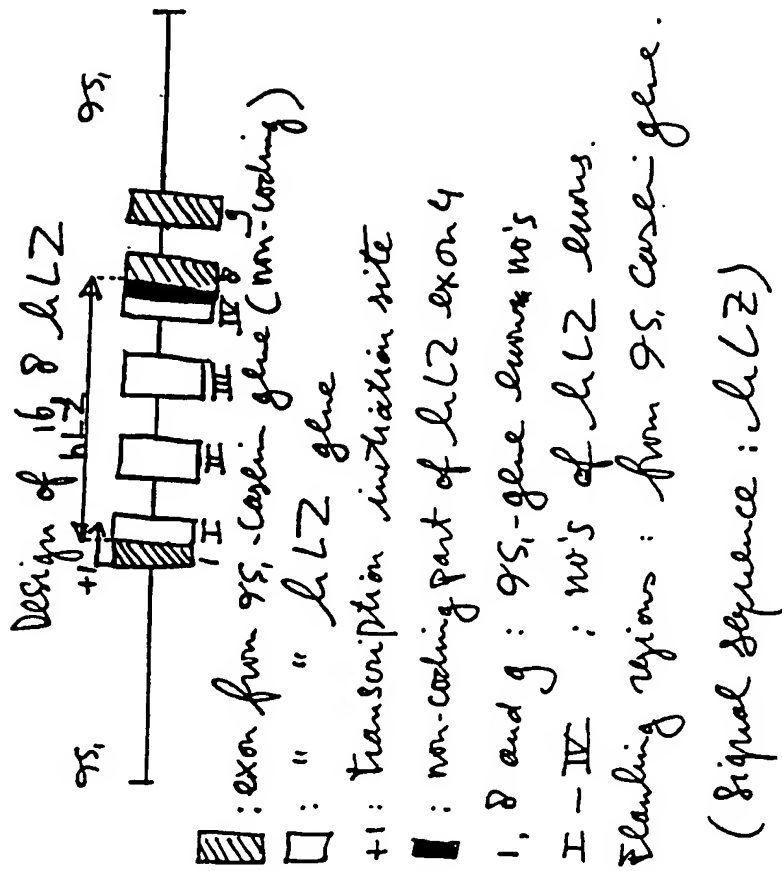 Design of 16, 8 hLZ
αS₁ αS₁
+1 hLZ
1 I II III IV 8 9
: exon from αS₁-casein gene (non-coding)
: " " hLZ gene
+1 : transcription initiation site
: non-coding part of hLZ exon 4
1, 8 and 9 : αS₁-gene exons no's
I - IV : no's of hLZ exons.
Flanking regions : from αS₁ casein gene.
(Signal sequence : hLZ)